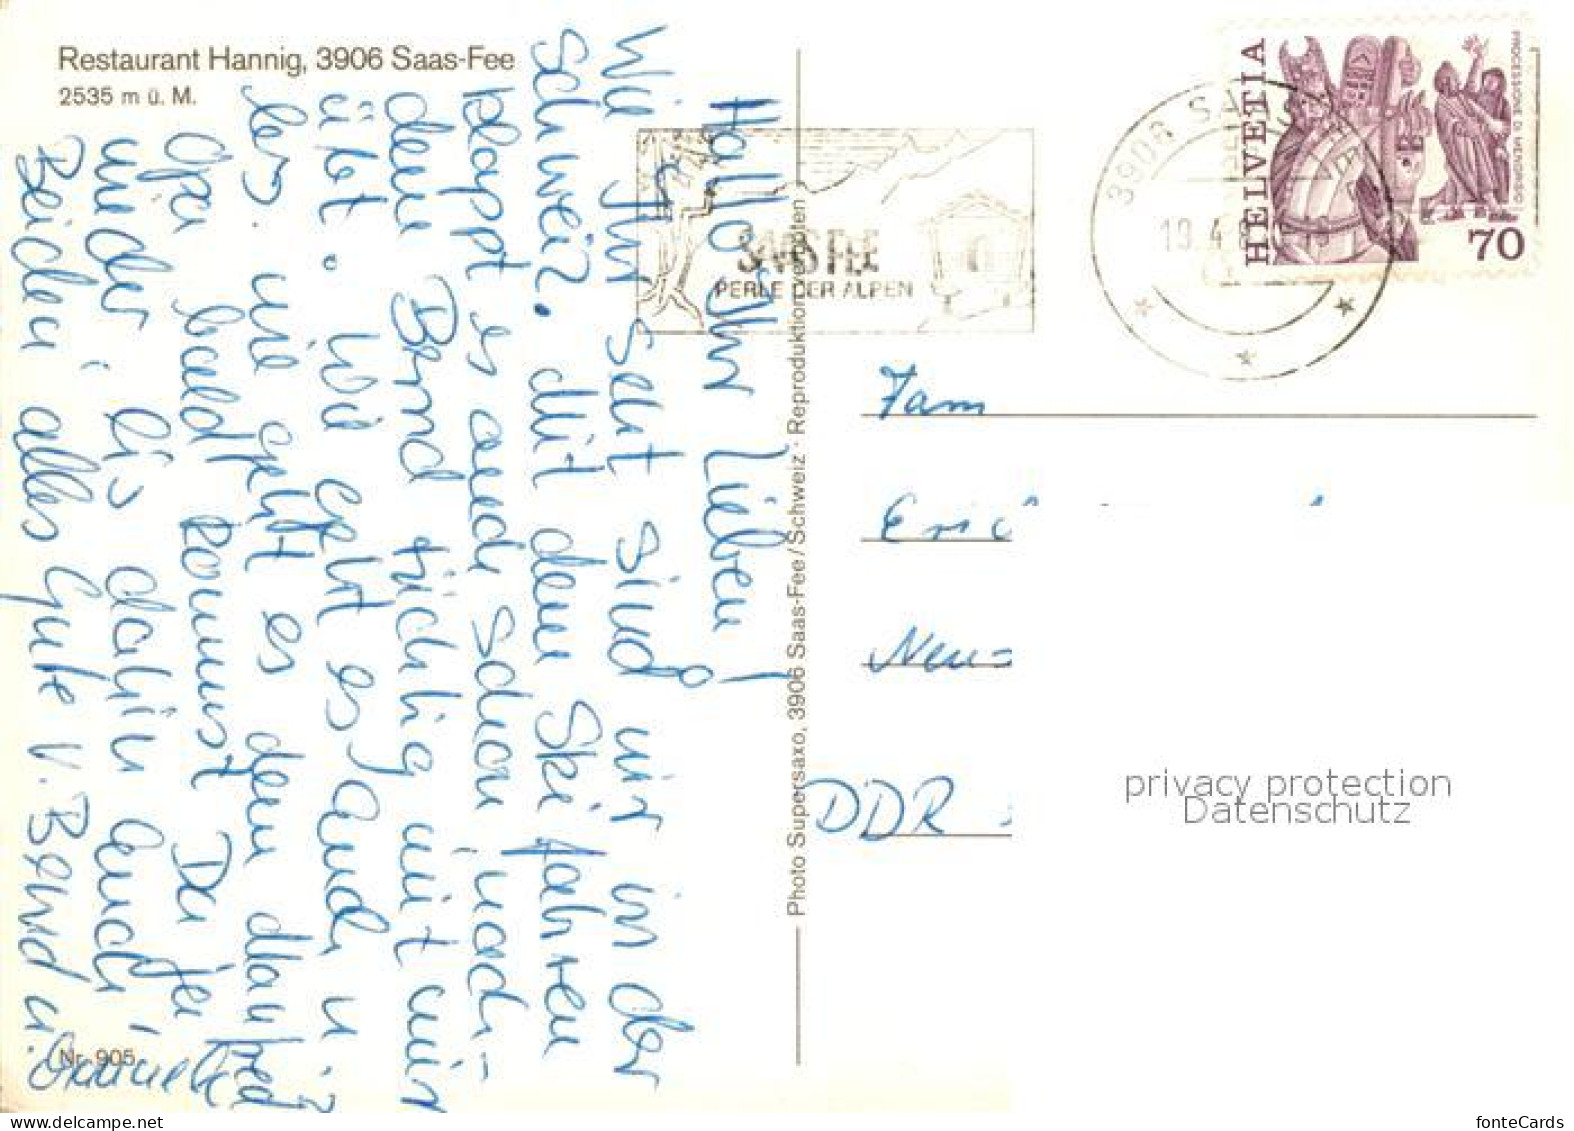 Restaurant Hannig, 3906 Saas-Fee
2535 m ü. M.
Hallo Ihr Lieben!
Wie Ihr seht sind wir in der
Schweiz. Mit dem Ski fahren
klappt es auch schon nach-
dem Bernd tüchtig mit mir
übt. Wie geht es Euch u.?
bes. wie geht es dem
Opa bald kommst Du ja
wieder, bis dahin Euch
Beiden alles Gute v. Bernd u.
Nr. 905
Photo Supersaxo, 3906 Saas-Fee/Schweiz · Reproduktion verboten
SAAS-FEE
PERLE DER ALPEN
3906 SAAS
19.4
HELVETIA
PROCESSIONE DI MENDRISIO
70
Fam
Eric
Neu-
DDR
privacy protection
Datenschutz
fonteCards